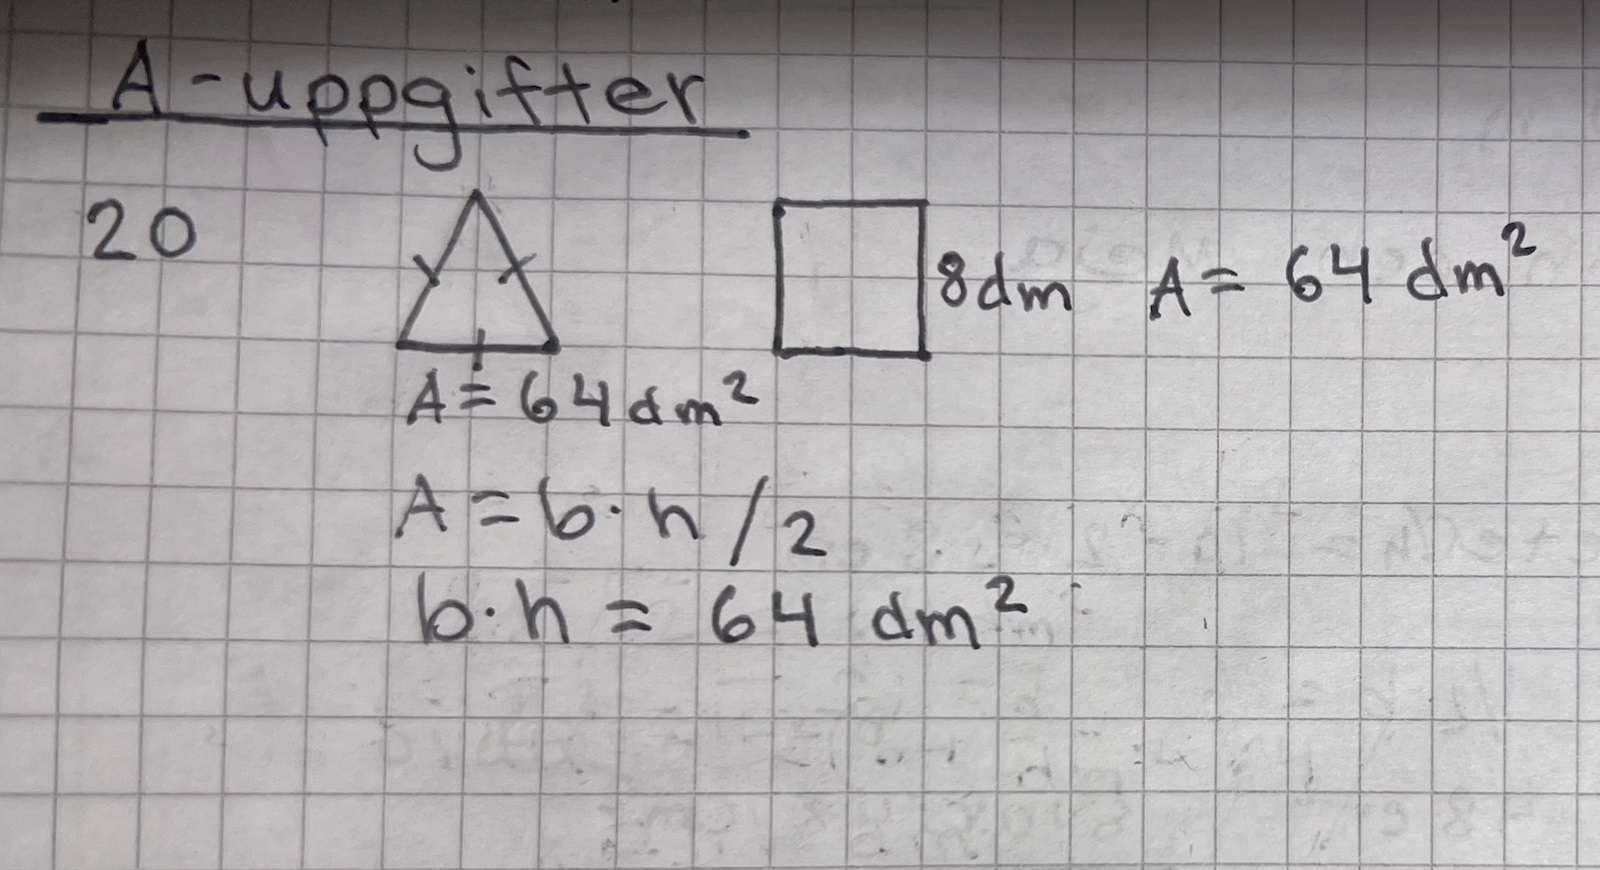 A-uppgifter
20
8dm A = 64 dm²
A = 64 dm²
A = b·h/2
b·h = 64 dm²